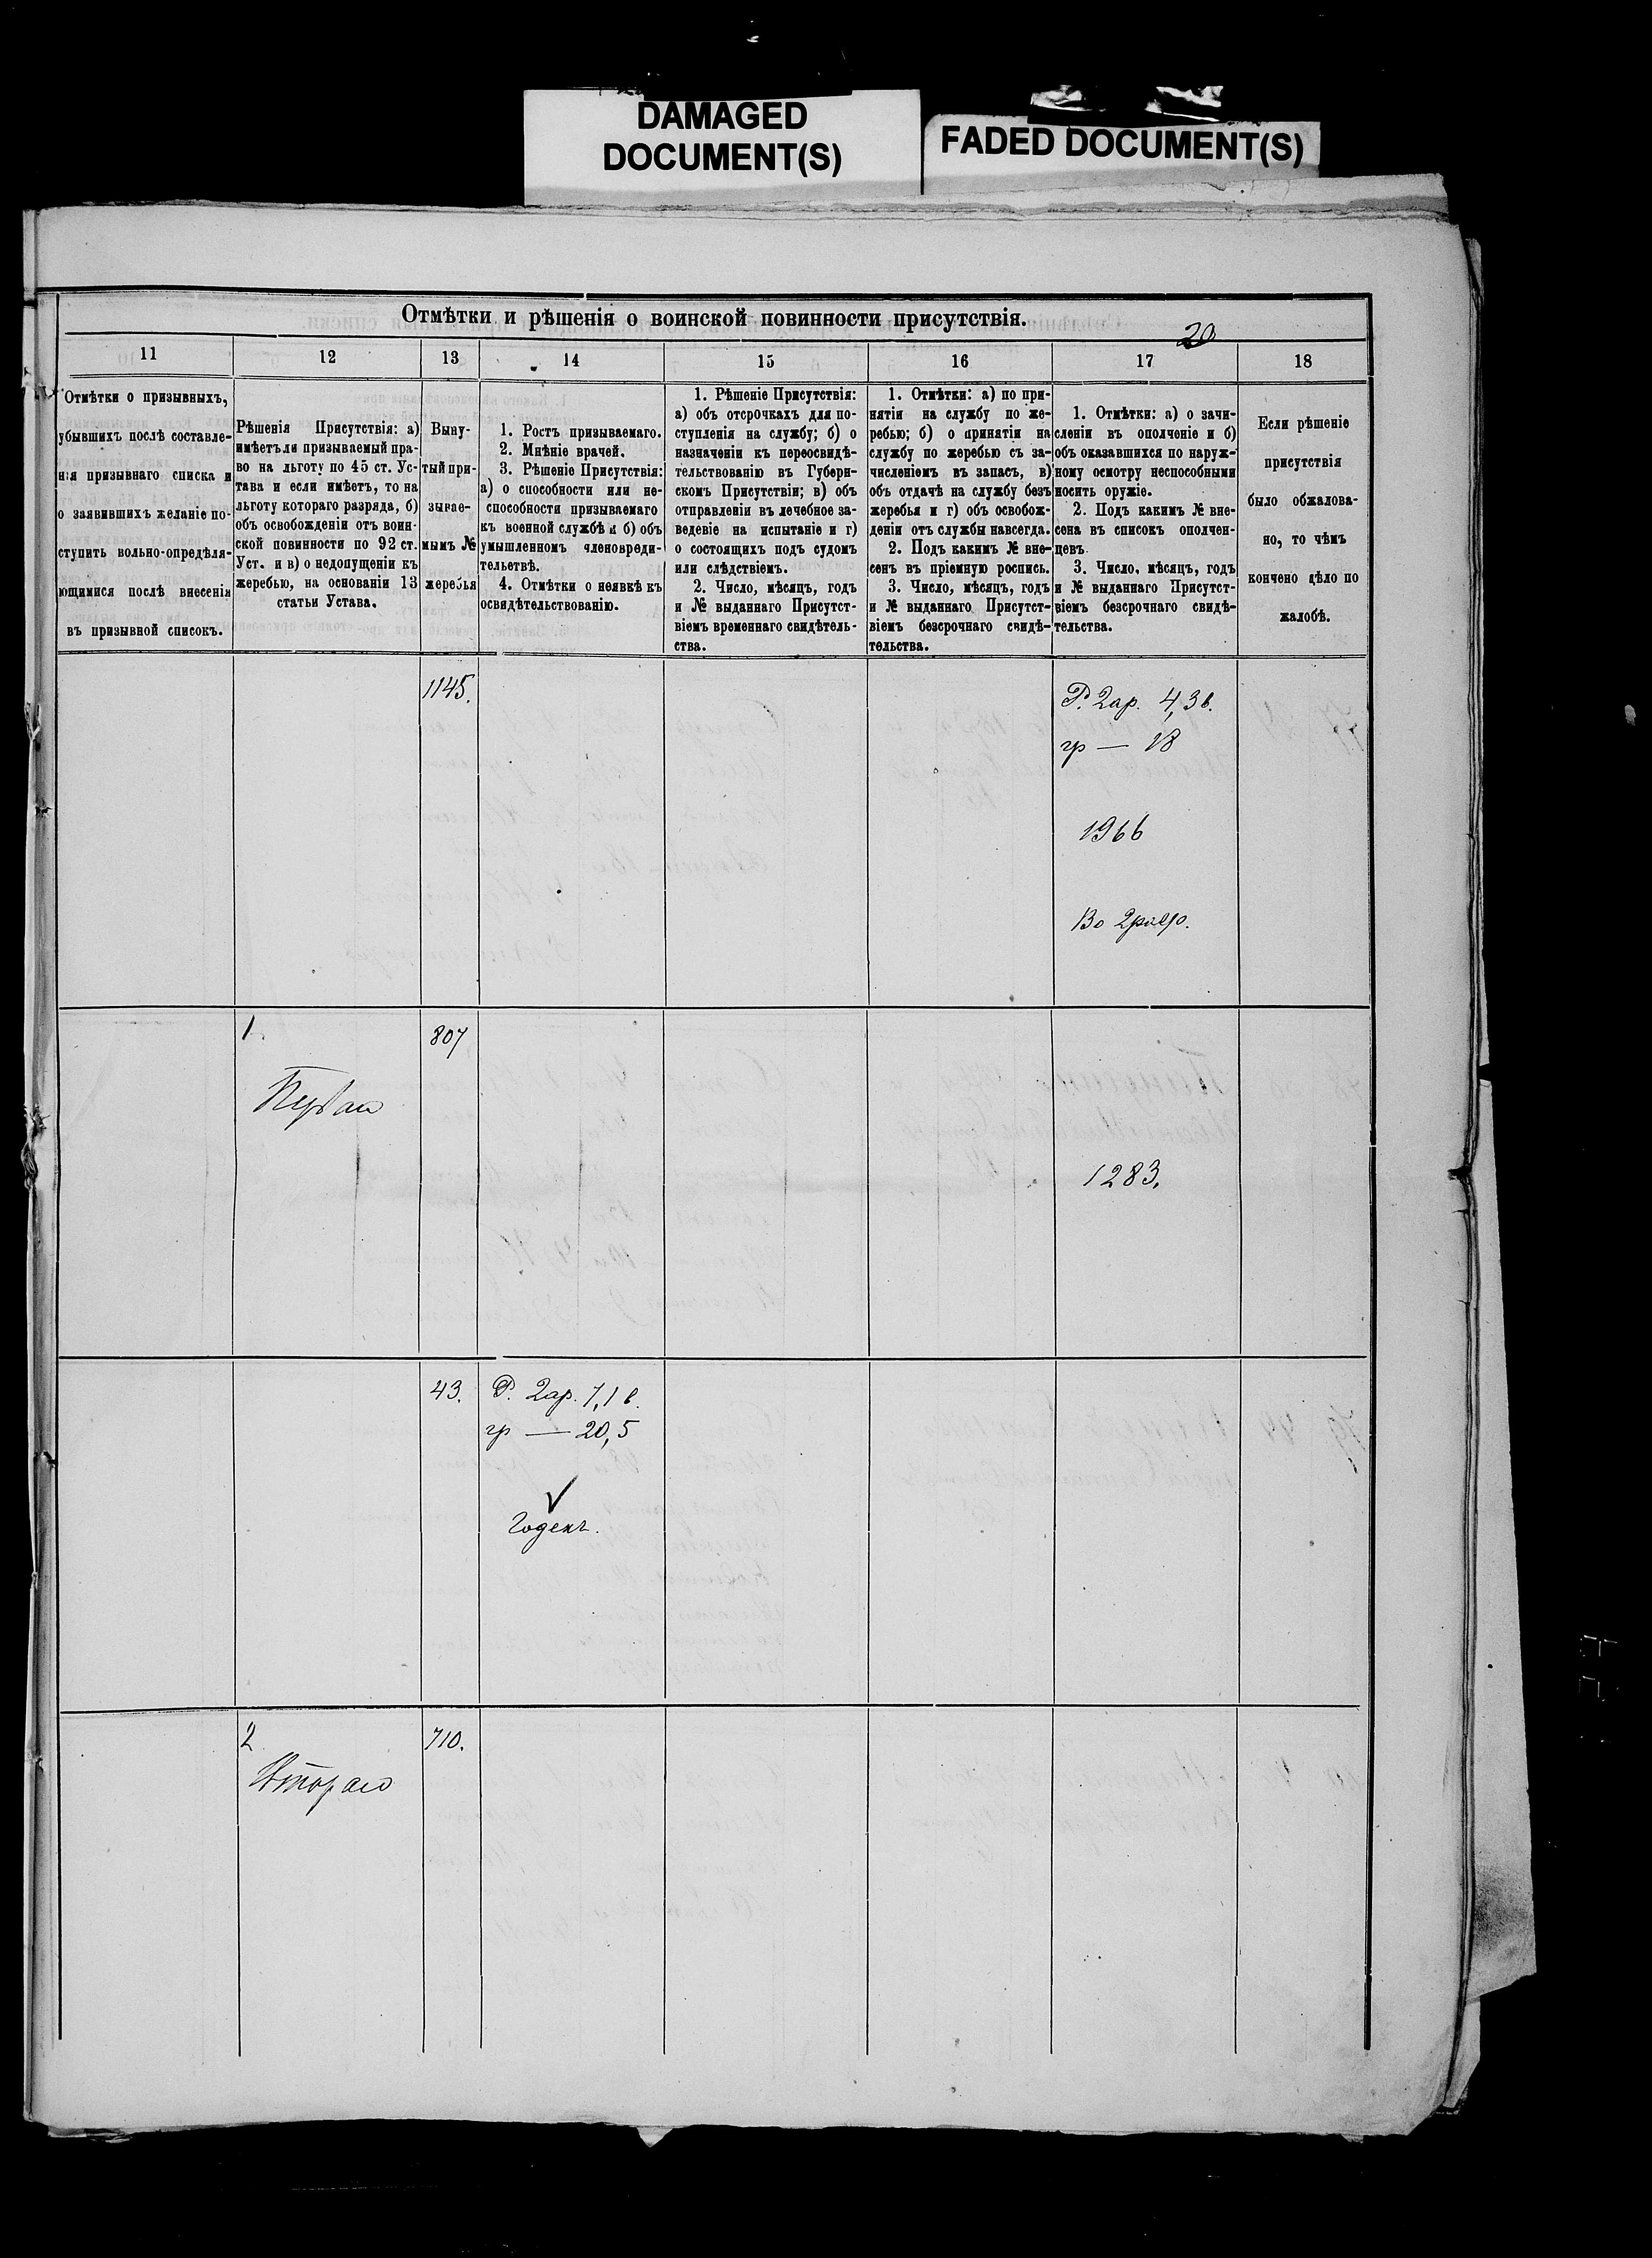 DAMAGED
DOCUMENT(S)
FADED DOCUMENT(S)
Отмѣтки и рѣшенія о воинской повинности присутствія.
20
11
12
13
14
15
16
17
18
Отмѣтки о призывныхъ,
убывшихъ послѣ составле-
нія призывнаго списка и
о заявившихъ желаніе по-
ступить вольно-опредѣля-
ющимися послѣ внесенія
въ призывной списокъ.
Рѣшенія Присутствія: а)
имѣетъ ли призываемый пра-
во на льготу по 45 ст. Ус-
тава и если имѣетъ, то на
льготу котораго разряда, б)
объ освобожденіи отъ воин-
ской повинности по 92 ст.
Уст. и в) о недопущеніи къ
жеребью, на основаніи 13
статьи Устава.
Выну-
тый при-
зывае-
мымъ №
жеребья
1. Ростъ призываемаго.
2. Мнѣніе врачей.
3. Рѣшеніе Присутствія:
а) о способности или не-
способности призываемаго
къ военной службѣ и б) объ
умышленномъ членовреди-
тельствѣ.
4. Отмѣтки о неявкѣ къ
освидѣтельствованію.
1. Рѣшеніе Присутствія:
а) объ отсрочкахъ для по-
ступленія на службу; б) о
назначеніи къ переосвидѣ-
тельствованію въ Губерн-
скомъ Присутствіи; в) объ
отправленіи въ лечебное за-
веденіе на испытаніе и г)
о состоящихъ подъ судомъ
или слѣдствіемъ.
2. Число, мѣсяцъ, годъ
и № выданнаго Присутст-
віемъ временнаго свидѣтель-
ства.
1. Отмѣтки: а) по при-
нятіи на службу по же-
ребью; б) о принятіи на
службу по жеребью съ за-
численіемъ въ запасъ, в)
объ отдачѣ на службу безъ
жеребья и г) объ освобож-
деніи отъ службы навсегда.
2. Подъ какимъ № вне-
сенъ въ пріемную роспись.
3. Число, мѣсяцъ, годъ
и № выданнаго Присутст-
віемъ безсрочнаго свидѣ-
тельства.
1. Отмѣтки: а) о зачи-
сленіи въ ополченіе и б)
объ оказавшихся по наруж-
ному осмотру неспособными
носить оружіе.
2. Подъ какимъ № вне-
сена въ списокъ ополчен-
цевъ.
3. Число, мѣсяцъ, годъ
и № выданнаго Присутст-
віемъ безсрочнаго свидѣ-
тельства.
Если рѣшеніе
присутствія
было обжалова-
но, то чѣмъ
кончено дѣло по
жалобѣ.
1145.
Р. 2 ар. 4,3 в.
гр — 18
1966
Во 2 разр.
1.
807
Перваго
1283.
43.
Р. 2 ар. 7,1 в.
гр — 20,5
✓
Годенъ.
2
710.
Втораго